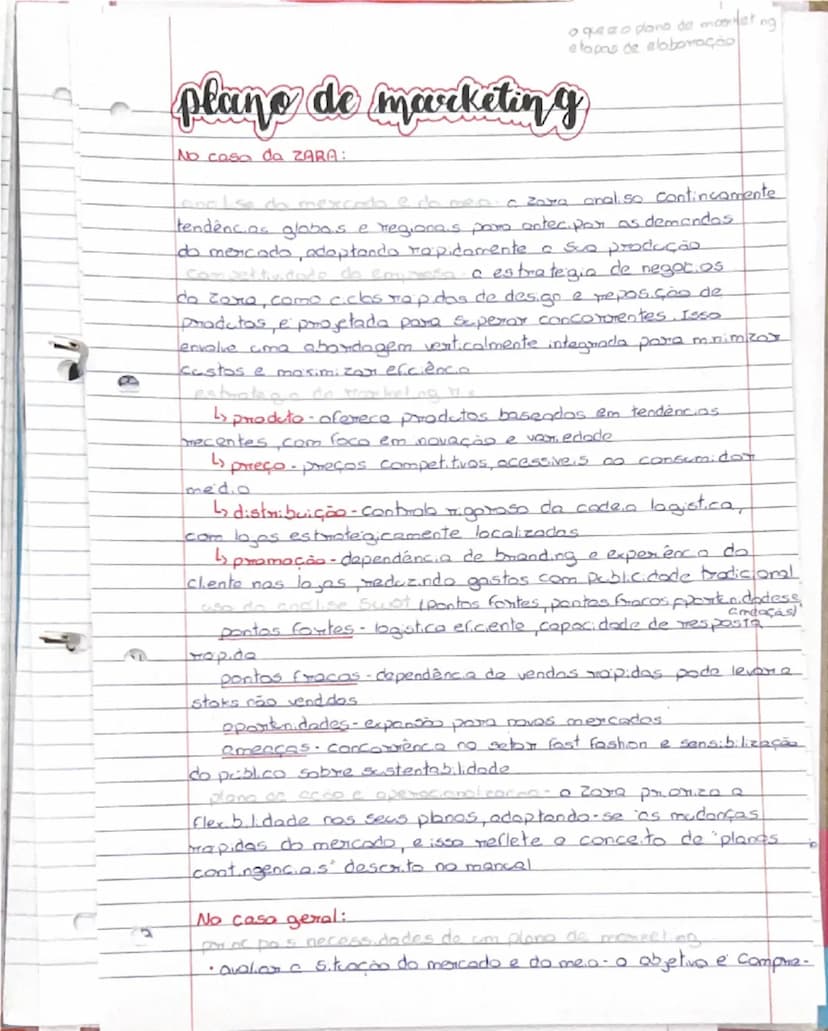 o que é o plano de marketing
etapas de elaboração
plano de marketing
No caso da ZARA:
analise do mercado e do meio - a zara analisa continuamente
tendências globais e regionais para antecipar as demandas
do mercado, adaptando rapidamente a sua produção
competitividade da empresa - a estrategia de negocios
da zara, como ciclos rapidos de design e reposição de
produtos, é projetada para superar concorrentes. Isso
envolve uma abordagem verticalmente integrada para minimizar
custos e maximizar eficiência
estrategia de marketing
↳ produto - oferece produtos baseados em tendências
recentes, com foco em inovação e variedade
↳ preço - preços competitivos, acessiveis ao consumidor
médio
↳ distribuição - controlo rigoroso da cadeia logistica,
com lojas estrategicamente localizadas
↳ promoção - dependência de branding e experiência do
cliente nas lojas, reduzindo gastos com publicidade tradicional
uso da analise swot (pontos fortes, pontos fracos, oportunidades e
pontos fortes - logistica eficiente, capacidade de resposta
rapida
pontos fracos - dependência de vendas rapidas pode levar a
stoks não vendidos
oportunidades - expansão para novos mercados
ameaças - concorrência no setor fast fashion e sensibilização
do público sobre sustentabilidade
plano de acao e operacionalizacao - a zara prioriza a
flexibilidade nos seus planos, adaptando-se ás mudanças
rapidas do mercado, e isso reflete o conceito de "planos
contingenciais" descrito no manual
No caso geral:
principais necessidades de um plano de marketing
• avaliar a situação do mercado e do meio - o objetivo é compre-